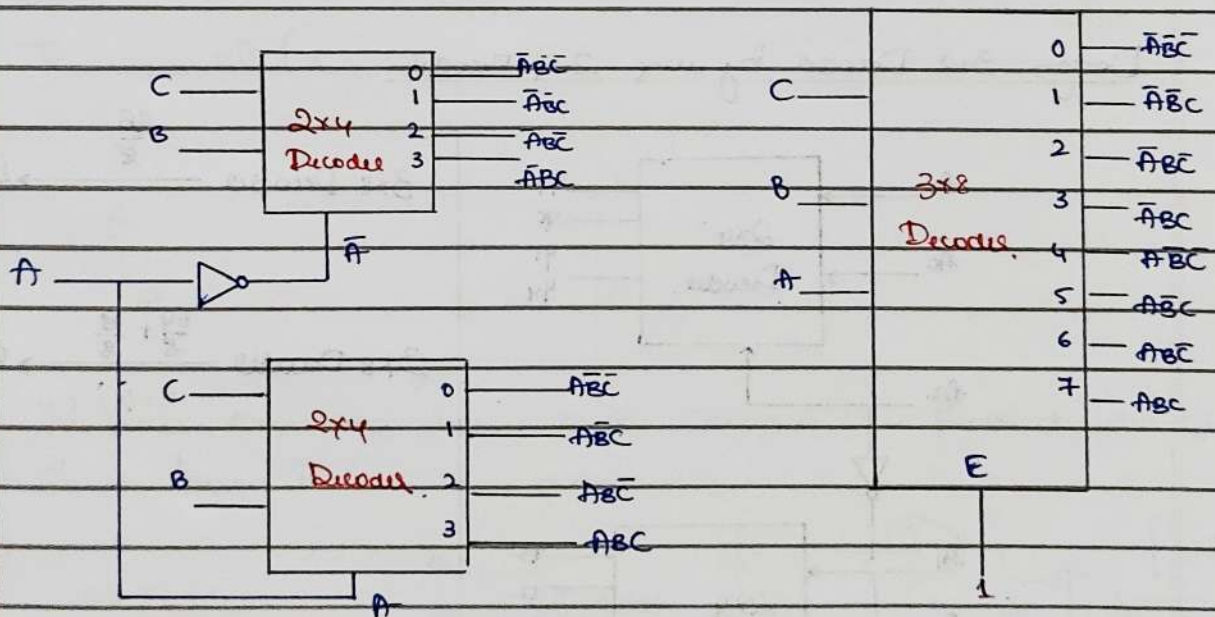 C
B
2x4
Decoder
0 A̅B̅C̅
1 A̅B̅C
2 A̅BC̅
3 A̅BC
A
A̅
C
B
2x4
Decoder.
0 AB̅C̅
1 AB̅C
2 ABC̅
3 ABC
A
C
B
A
3x8
Decoder.
0 A̅B̅C̅
1 A̅B̅C
2 A̅BC̅
3 A̅BC
4 AB̅C̅
5 AB̅C
6 ABC̅
7 ABC
E
1